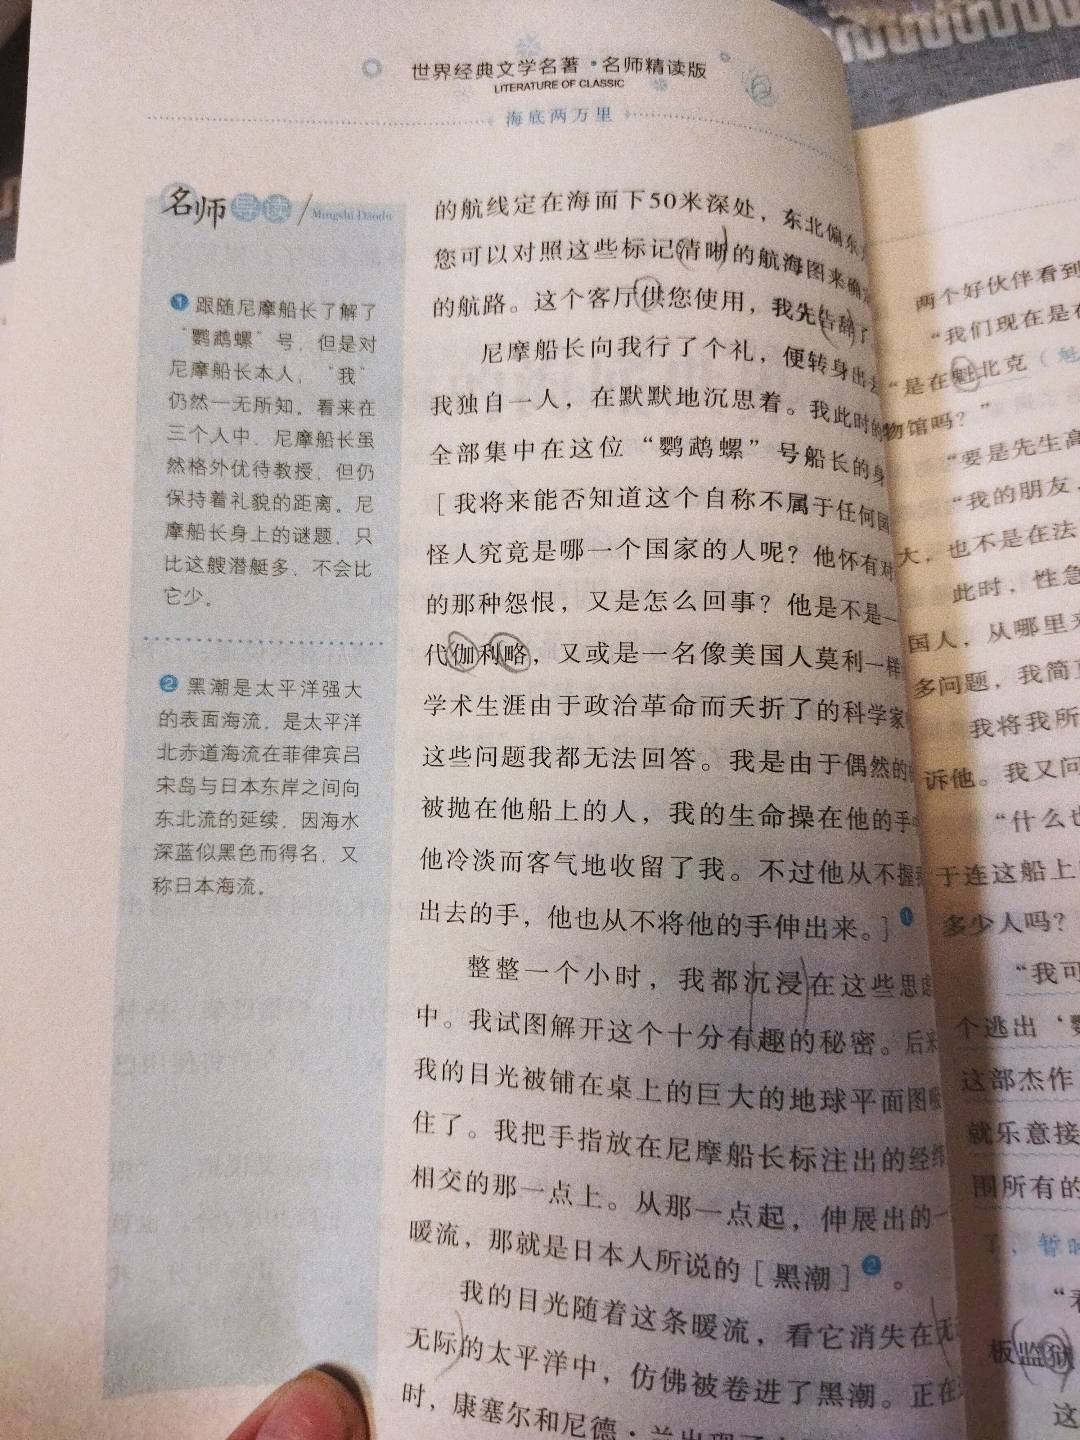 世界经典文学名著·名师精读版
LITERATURE OF CLASSIC
海底两万里
名师导读 Mingshi Daodu
1 跟随尼摩船长了解了
“鹦鹉螺”号，但是对
尼摩船长本人，“我”
仍然一无所知。看来在
三个人中，尼摩船长虽
然格外优待教授，但仍
保持着礼貌的距离。尼
摩船长身上的谜题，只
比这艘潜艇多，不会比
它少。
2 黑潮是太平洋强大
的表面海流，是太平洋
北赤道海流在菲律宾吕
宋岛与日本东岸之间向
东北流的延续，因海水
深蓝似黑色而得名，又
称日本海流。
的航线定在海面下50米深处，东北偏东
您可以对照这些标记清晰的航海图来确
的航路。这个客厅供您使用，我先告辞了
尼摩船长向我行了个礼，便转身出
我独自一人，在默默地沉思着。我此时的
全部集中在这位“鹦鹉螺”号船长的身
[我将来能否知道这个自称不属于任何国
怪人究竟是哪一个国家的人呢？他怀有对
的那种怨恨，又是怎么回事？他是不是一
代伽利略，又或是一名像美国人莫利一样
学术生涯由于政治革命而夭折了的科学家
这些问题我都无法回答。我是由于偶然的
被抛在他船上的人，我的生命操在他的手
他冷淡而客气地收留了我。不过他从不握
出去的手，他也从不将他的手伸出来。]1
整整一个小时，我都沉浸在这些思
中。我试图解开这个十分有趣的秘密。后来
我的目光被铺在桌上的巨大的地球平面图
住了。我把手指放在尼摩船长标注出的经纬
相交的那一点上。从那一点起，伸展出的一
暖流，那就是日本人所说的[黑潮]2。
我的目光随着这条暖流，看它消失在无
无际的太平洋中，仿佛被卷进了黑潮。正在
时，康塞尔和尼德·兰出现了
两个好伙伴看到
“我们现在是在
“是在魁北克（魁
物馆吗？”
“要是先生高
“我的朋友，
大，也不是在法
此时，性急
国人，从哪里来
多问题，我简直
我将我所
诉他。我又问
“什么也
于连这船上
多少人吗？
“我可
个逃出‘鹦
这部杰作
就乐意接
围所有的
了，暂时
“看
板监狱
这